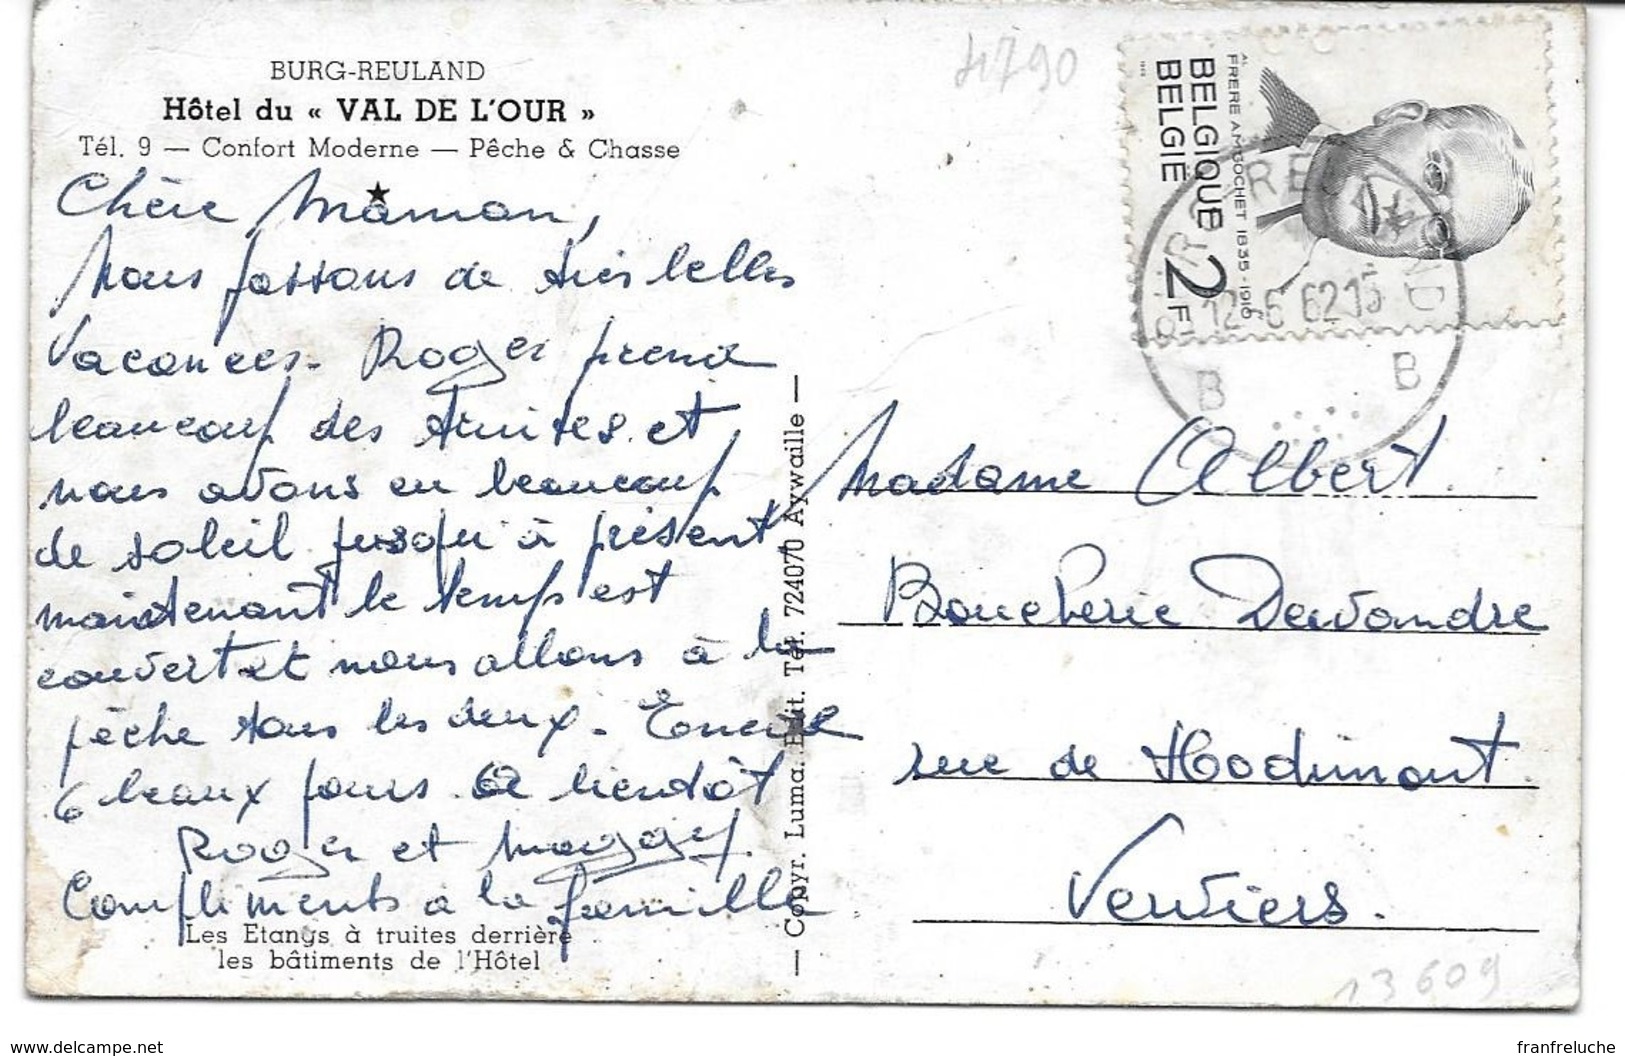 BURG-REULAND
Hôtel du « VAL DE L'OUR »
Tél. 9 — Confort Moderne — Pêche & Chasse
Chère Maman,
Nous passons de très belles
vacances. Roger prend
beaucoup des truites et
nous avons eu beaucoup
de soleil jusqu'à présent
maintenant le temps est
couvert et nous allons à la
pêche tous les deux. Encore
6 beaux jours. A bientôt
Roger et Maggy.
Compliments à la famille
Les Etangs à truites derrière
les bâtiments de l'Hôtel
— Copyr. Luma. Edit. Tél. 724070 Aywaille —
4790
BELGIQUE 2F
BELGIË
AL. FRERE AMIGOCHET 1835-1916
12-6 62 15
B B
Madame Albert.
Boucherie Dewandre
rue de Hodimont.
Verviers.
13609
delcampe.net
franfreluche